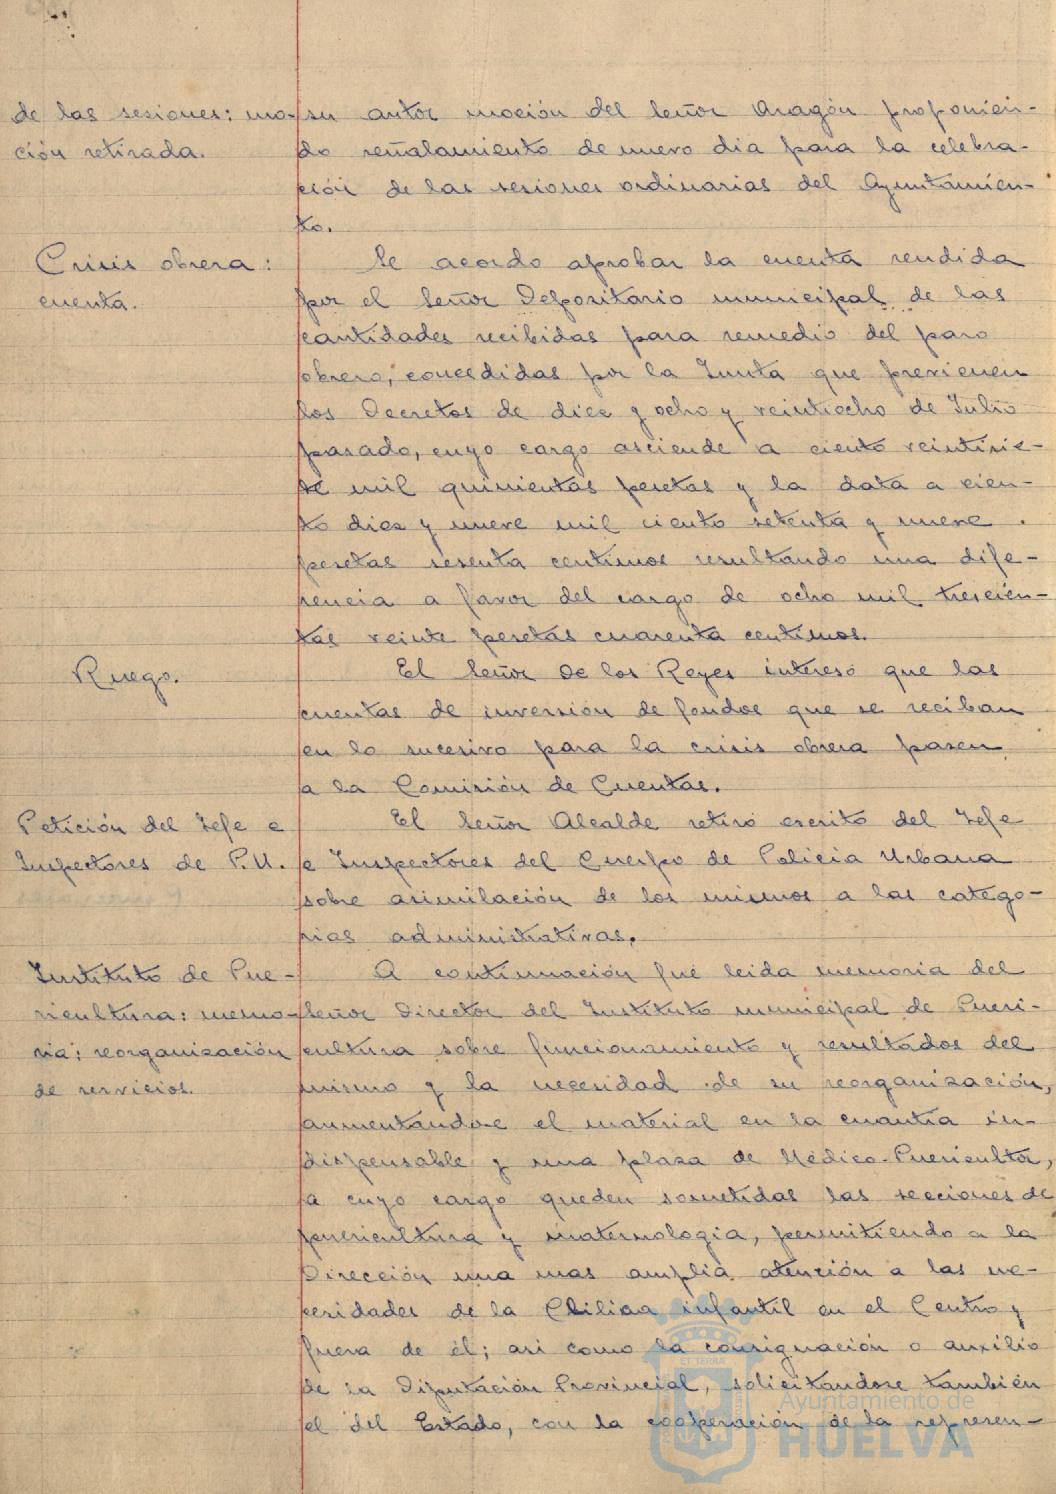 de las sesiones: mo-
ción retirada.
su autor moción del Señor Aragón proponien-
do señalamiento de nuevo dia para la celebra-
ción de las sesiones ordinarias del Ayuntamien-
to.
Crisis obrera:
cuenta.
Se acordo aprobar la cuenta rendida
por el Señor Depositario municipal de las
cantidades recibidas para remedio del paro
obrero, concedidas por la Junta que previenen
los Decretos de diez y ocho y veintiocho de Julio
pasado, cuyo cargo asciende a ciento veintisie-
te mil quinientas pesetas y la data a cien-
to diez y nueve mil ciento setenta y nueve
pesetas sesenta centimos resultando una dife-
rencia a favor del cargo de ocho mil trescien-
tas veinte pesetas cuarenta centimos.
Ruego.
El Señor De los Reyes interesó que las
cuentas de inversión de fondos que se reciban
en lo sucesivo para la crisis obrera pasen
a la Comisión de Cuentas.
Petición del Jefe e
Inspectores de P.U.
El Señor Alcalde retiró escrito del Jefe
e Inspectores del Cuerpo de Policia Urbana
sobre asimilación de los mismos a las catego-
rias administrativas.
Instituto de Pue-
ricultura: memo-
ria; reorganización
de servicios.
A continuación fué leida memoria del
Señor Director del Instituto municipal de Pueri-
cultura sobre funcionamiento y resultados del
mismo y la necesidad de su reorganización,
aumentandose el material en la cuantía in-
dispensable y una plaza de Médico-Puericultor,
a cuyo cargo queden sometidas las secciones de
puericultura y maternologia, permitiendo a la
Dirección una mas amplia atención a las ne-
cesidades de la Clinica infantil en el Centro y
fuera de él; asi como la consignación o auxilio
de la Diputación Provincial, solicitandose también
el del Estado, con la cooperación de la represen-
ET TERRA
Ayuntamiento de
HUELVA